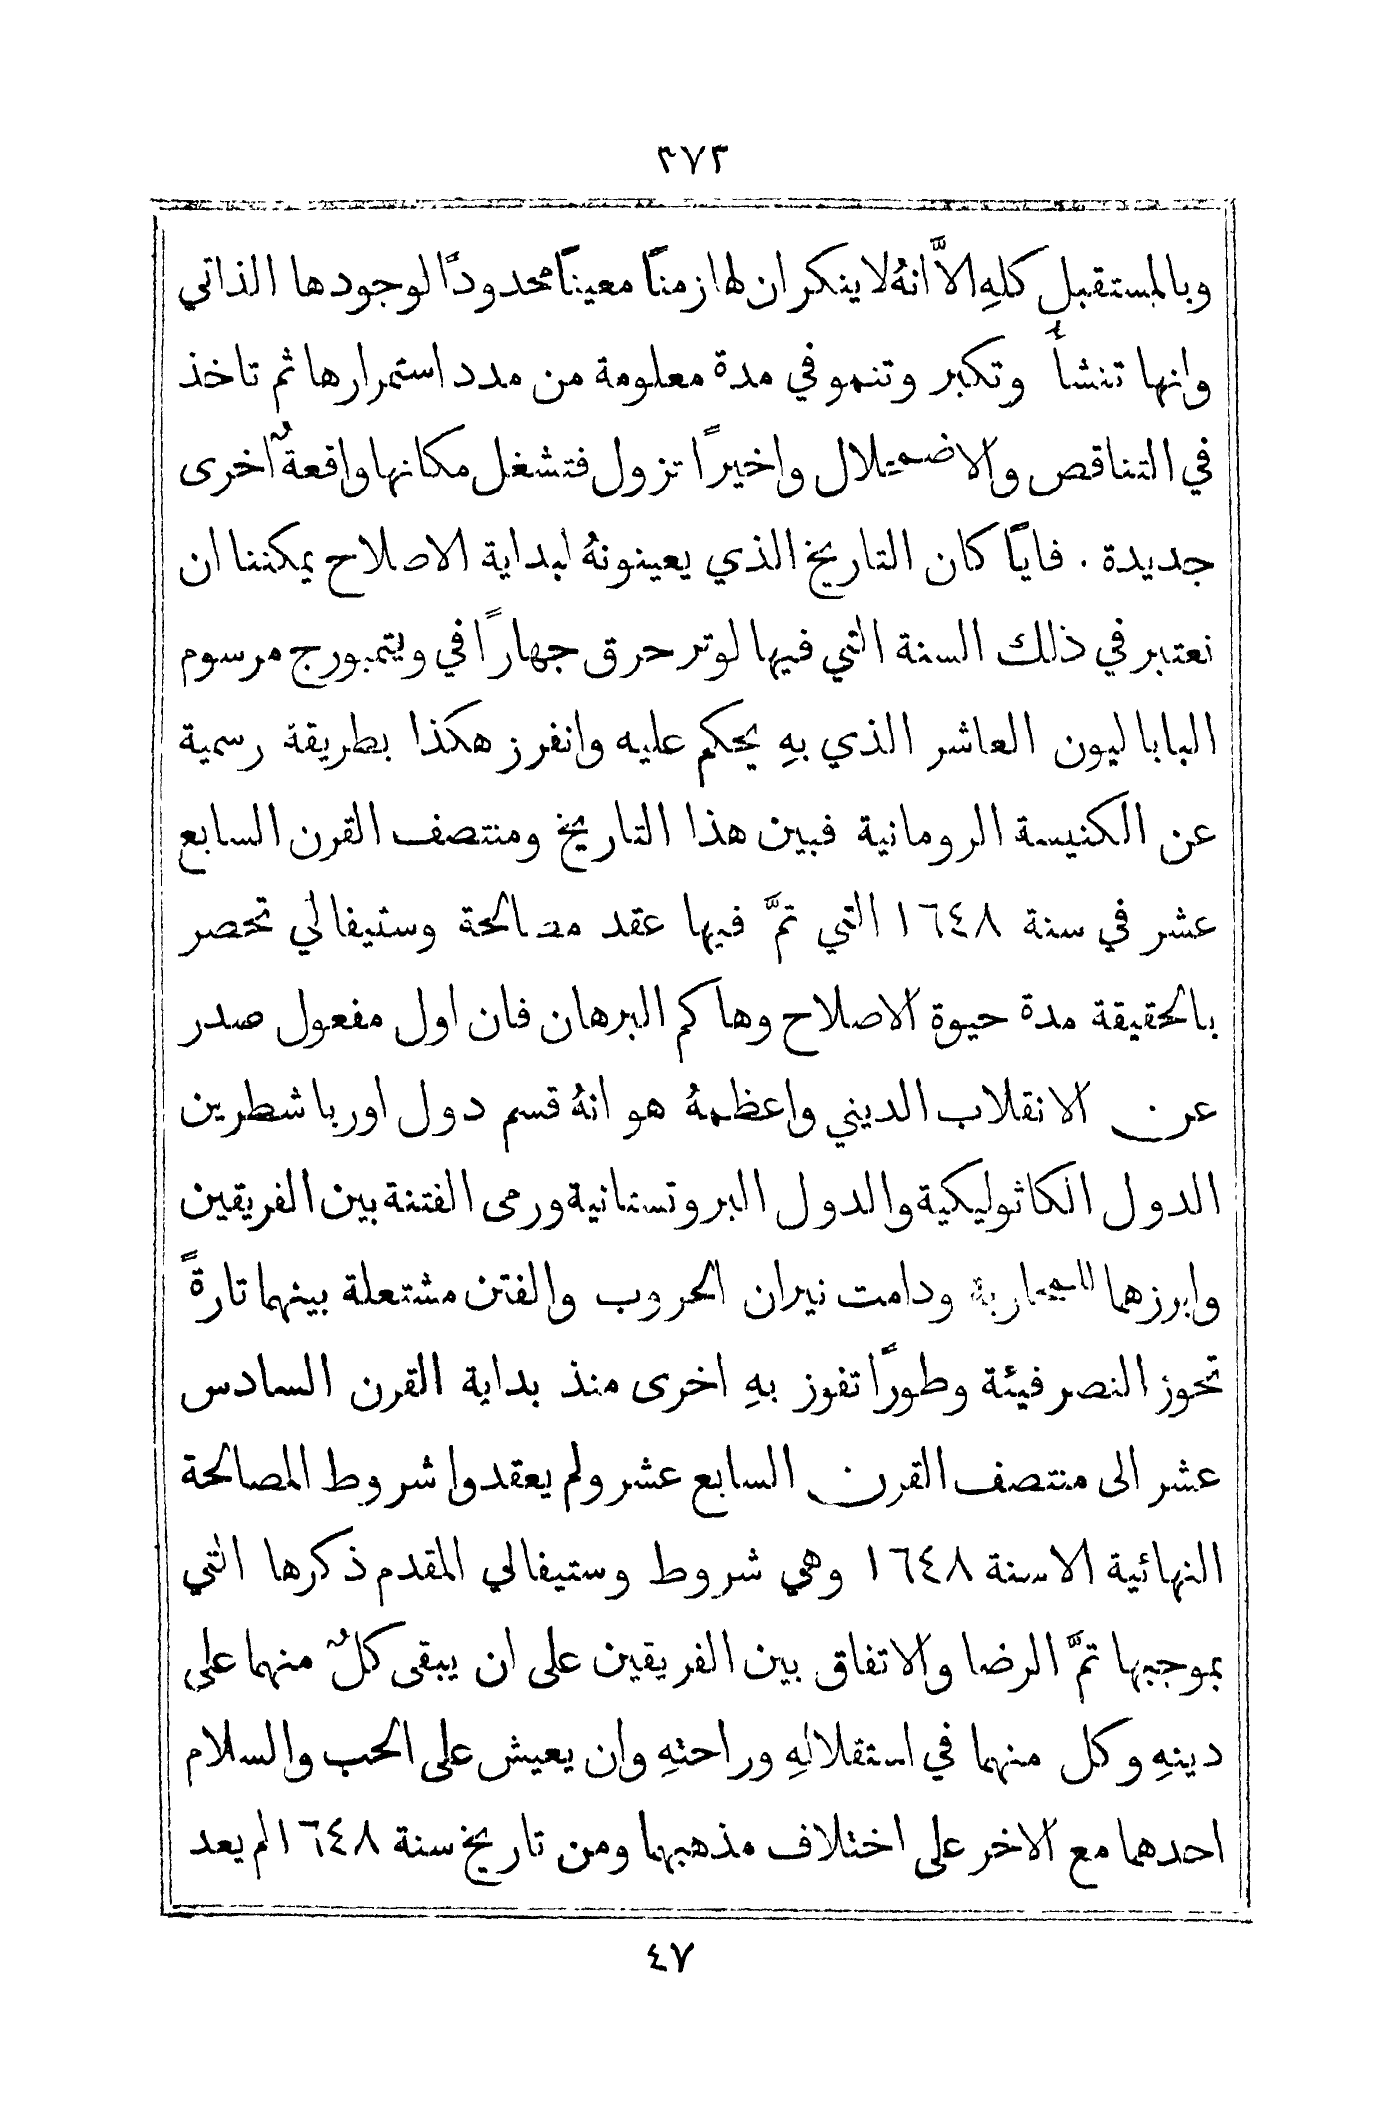 ٣٧٣
وبالمستقبل كلهِ الاَّ انهُ لا ينكر ان لها زمناً معيناً محدوداً لوجودها الذاتي
وانها تنشأُ وتكبر وتنمو في مدة معلومة من مدد استمرارها ثم تاخذ
في التناقص والاضمحلال واخيراً تزول فتشغل مكانها واقعةٌ اخرى
جديدة . فاياً كان التاريخ الذي يعينونهُ لبداية الاصلاح يمكننا ان
نعتبر في ذلك السنة التي فيها لوتر حرق جهاراً في ويتمبورج مرسوم
البابا ليون العاشر الذي بهِ يحكم عليه وانفرز هكذا بطريقة رسمية
عن الكنيسة الرومانية فبين هذا التاريخ ومنتصف القرن السابع
عشر في سنة ١٦٤٨ التي تمَّ فيها عقد مصالحة وستيفالي تحصر
بالحقيقة مدة حيوة الاصلاح وهاكم البرهان فان اول مفعول صدر
عن الانقلاب الديني واعظمهُ هو انهُ قسم دول اوربا شطرين
الدول الكاثوليكية والدول البروتستانية ورمى الفتنة بين الفريقين
وابرزهما للمحاربة ودامت نيران الحروب والفتن مشتعلة بينهما تارةً
تحوز النصر فيئة وطوراً تفوز بهِ اخرى منذ بداية القرن السادس
عشر الى منتصف القرن السابع عشر ولم يعقدوا شروط المصالحة
النهائية الا سنة ١٦٤٨ وهي شروط وستيفالي المقدم ذكرها التي
بموجبها تمَّ الرضا والاتفاق بين الفريقين على ان يبقى كلٌ منهما على
دينهِ وكل منهما في استقلالهِ وراحتهِ وان يعيش على الحب والسلام
احدهما مع الاخر على اختلاف مذهبهما ومن تاريخ سنة ١٦٤٨ لم يعد
٤٧